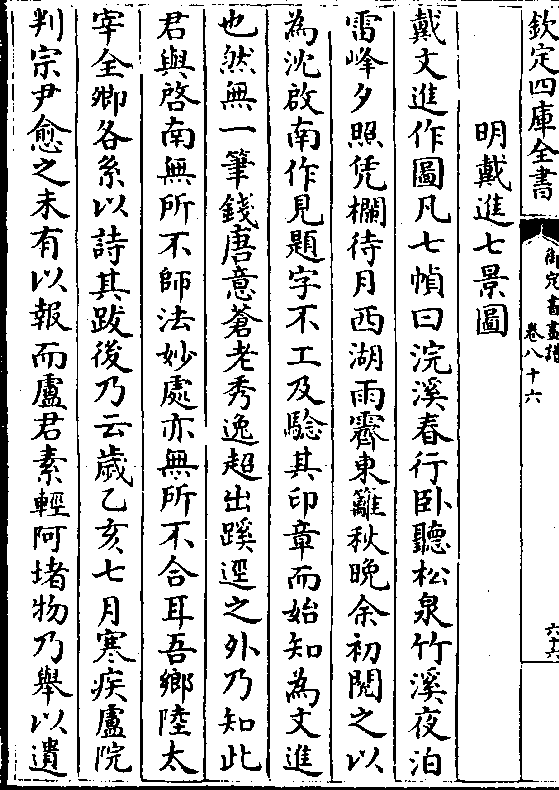 欽定四庫全書
御定書畫譜
卷八十六
六十六
明戴進七景圖
戴文進作圖凡七幀曰浣溪春行臥聽松泉竹溪夜泊
雷峰夕照凭欄待月西湖雨霽東籬秋晚余初閱之以
為沈啟南作見題字不工及驗其印章而始知為文進
也然無一筆錢唐意蒼老秀逸超出蹊逕之外乃知此
君與啓南無所不師法妙處亦無所不合耳吾鄉陸太
宰全卿各系以詩其跋後乃云歳乙亥七月寒疾盧院
判宗尹愈之未有以報而盧君素輕阿堵物乃舉以遺